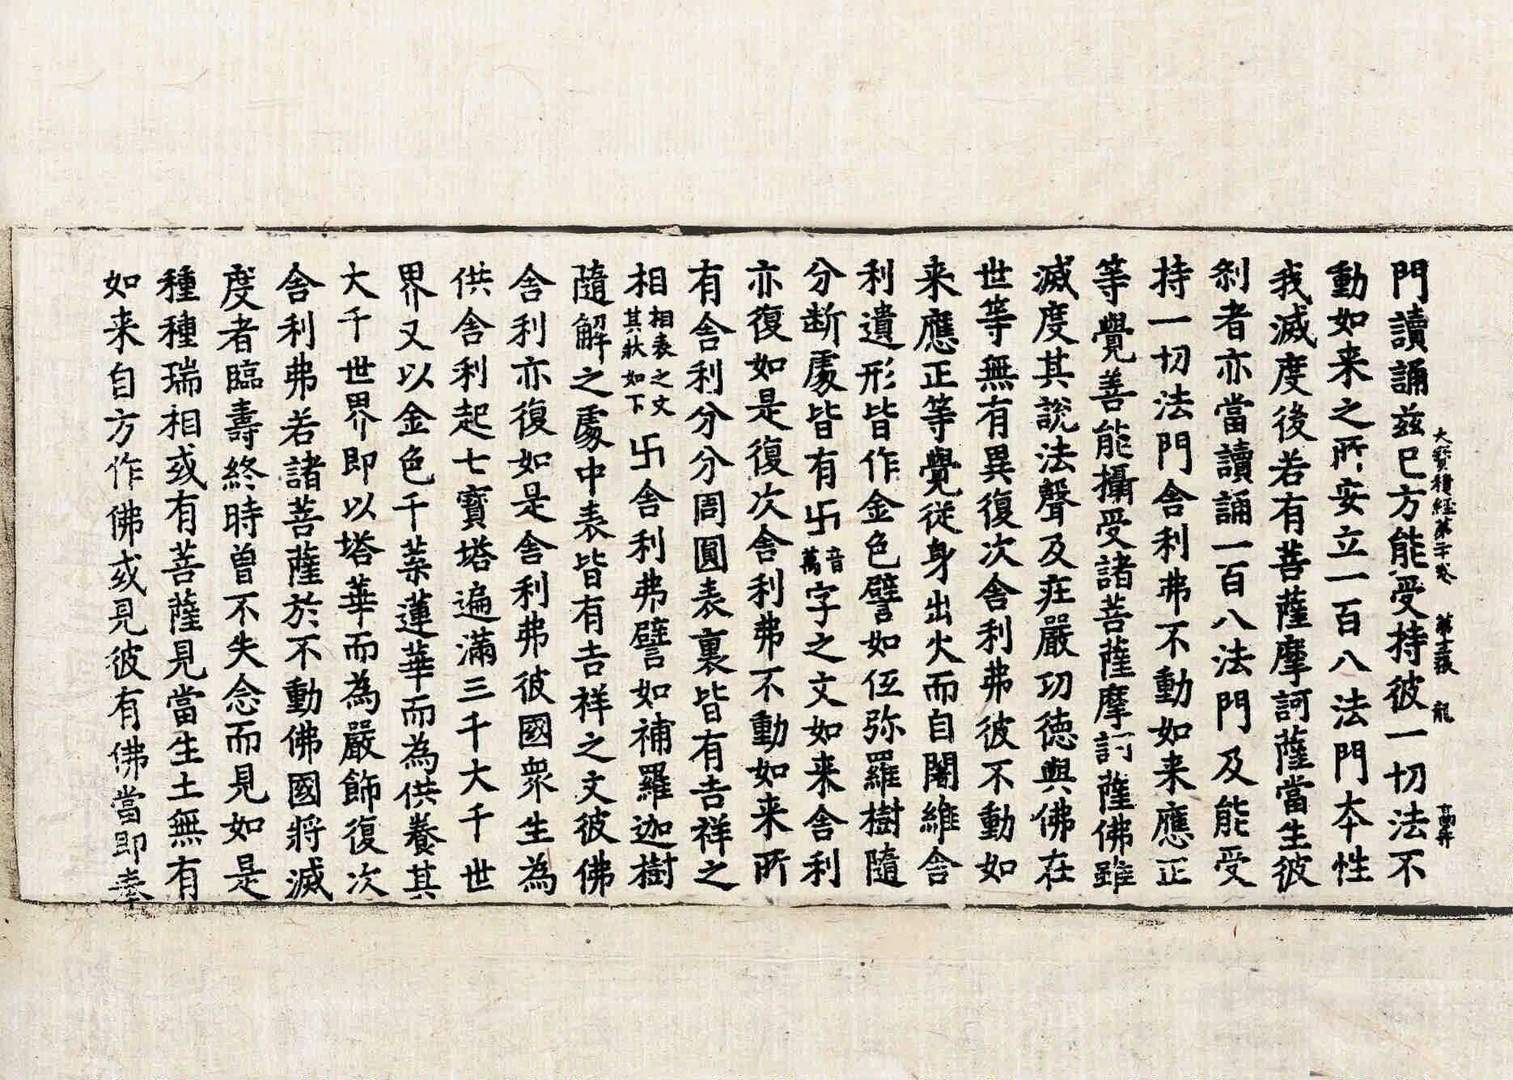 大寳積経第二十卷 第 張 龍
門讀誦兹已方能受持彼一切法不
動如来之所安立一百八法門本性
我滅度後若有菩薩摩訶薩當生彼
刹者亦當讀誦一百八法門及能受
持一切法門舍利弗不動如来應正
等覺善能攝受諸菩薩摩訶薩佛雖
滅度其說法聲及疰嚴功德與佛在
世等無有異復次舍利弗彼不動如
来應正等覺従身出火而自闍維舍
利遺形皆作金色譬如伍弥羅樹隨
分断處皆有卍音萬字之文如来舍利
亦復如是復次舍利弗不動如来所
有舍利分分周圓表裏皆有吉祥之
相相表之文其狀如下卍舍利弗譬如補羅迦樹
隨解之處中表皆有吉祥之文彼佛
舍利亦復如是舍利弗彼國衆生為
供舍利起七寳塔遍滿三千大千世
界又以金色千葉蓮華而為供養其
大千世界即以塔華而為嚴飾復次
舍利弗若諸菩薩於不動佛國將滅
度者臨壽終時曽不失念而見如是
種種瑞相或有菩薩見當生土無有
如来自方作佛或見彼有佛當即奉